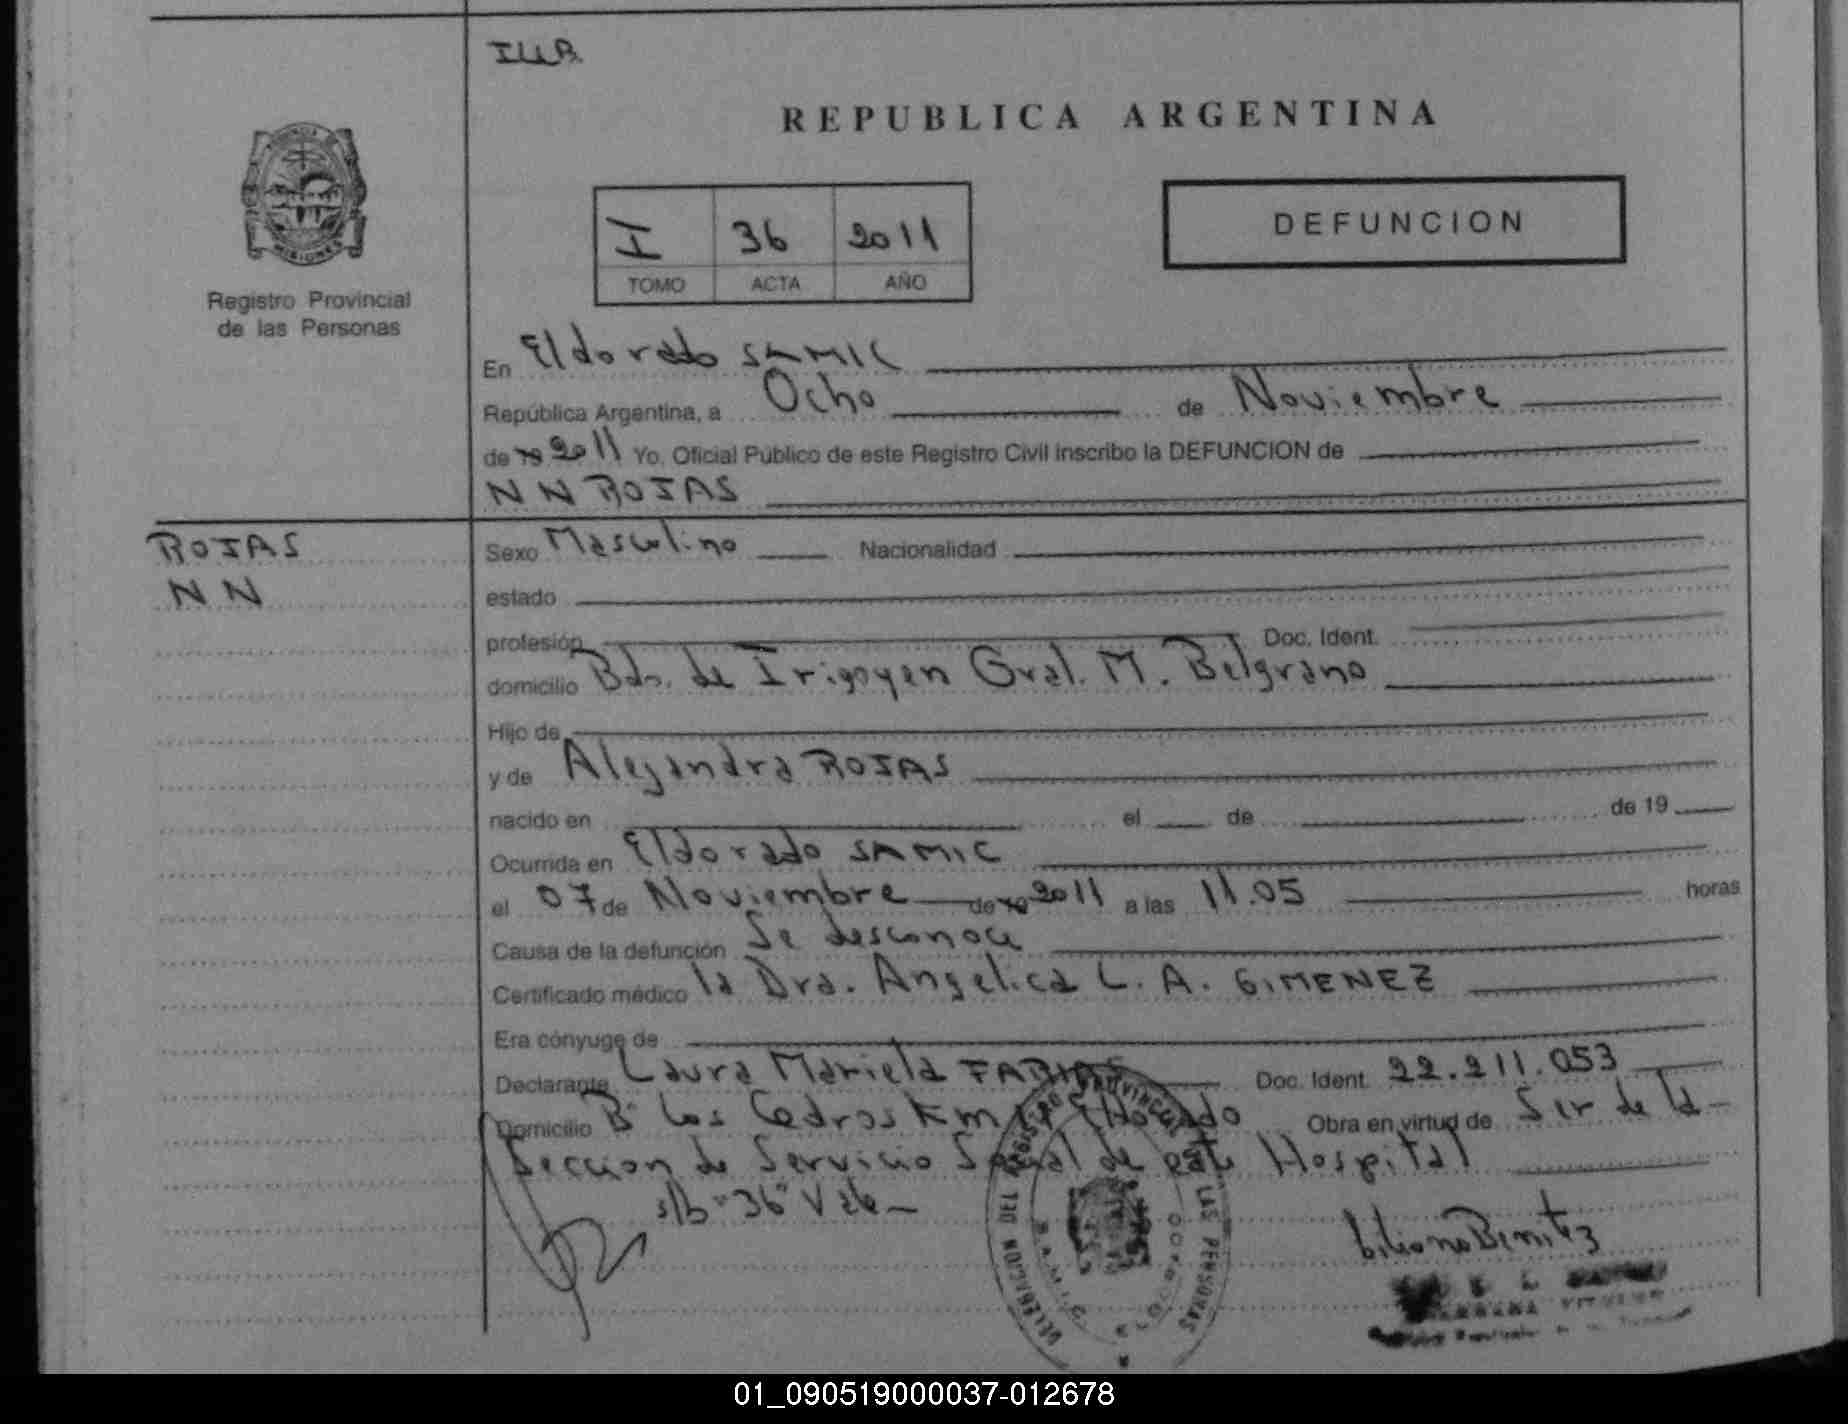 REPUBLICA ARGENTINA
MISIONES
Registro Provincial
de las Personas
I 36 2011
TOMO ACTA AÑO
DEFUNCION
En Eldorado SAMIC
República Argentina, a Ocho de Noviembre
de 19 2011 Yo, Oficial Público de este Registro Civil inscribo la DEFUNCION de
N N ROJAS
ROJAS
N N
Sexo Masculino Nacionalidad
estado
profesión Doc. Ident.
domicilio Bdo. de Irigoyen Gral. M. Belgrano
Hijo de
y de Alejandra ROJAS
nacido en el de de 19
Ocurrida en Eldorado SAMIC
el 07 de Noviembre de 19 2011 a las 11.05 horas
Causa de la defunción Se desconoce
Certificado médico la Dra. Angelica L. A. GIMENEZ
Era cónyuge de
Declarante Laura Mariela Doc. Ident. 22.211.053
Domicilio B° Los Cedros Km Eldorado Obra en virtud de Ser de la -
Seccion de Servicio Social de este Hospital
s/b "36" Vale -
DELEGACION DEL REGISTRO PROVINCIAL DE LAS PERSONAS
Liliana Benitez
01_090519000037-012678